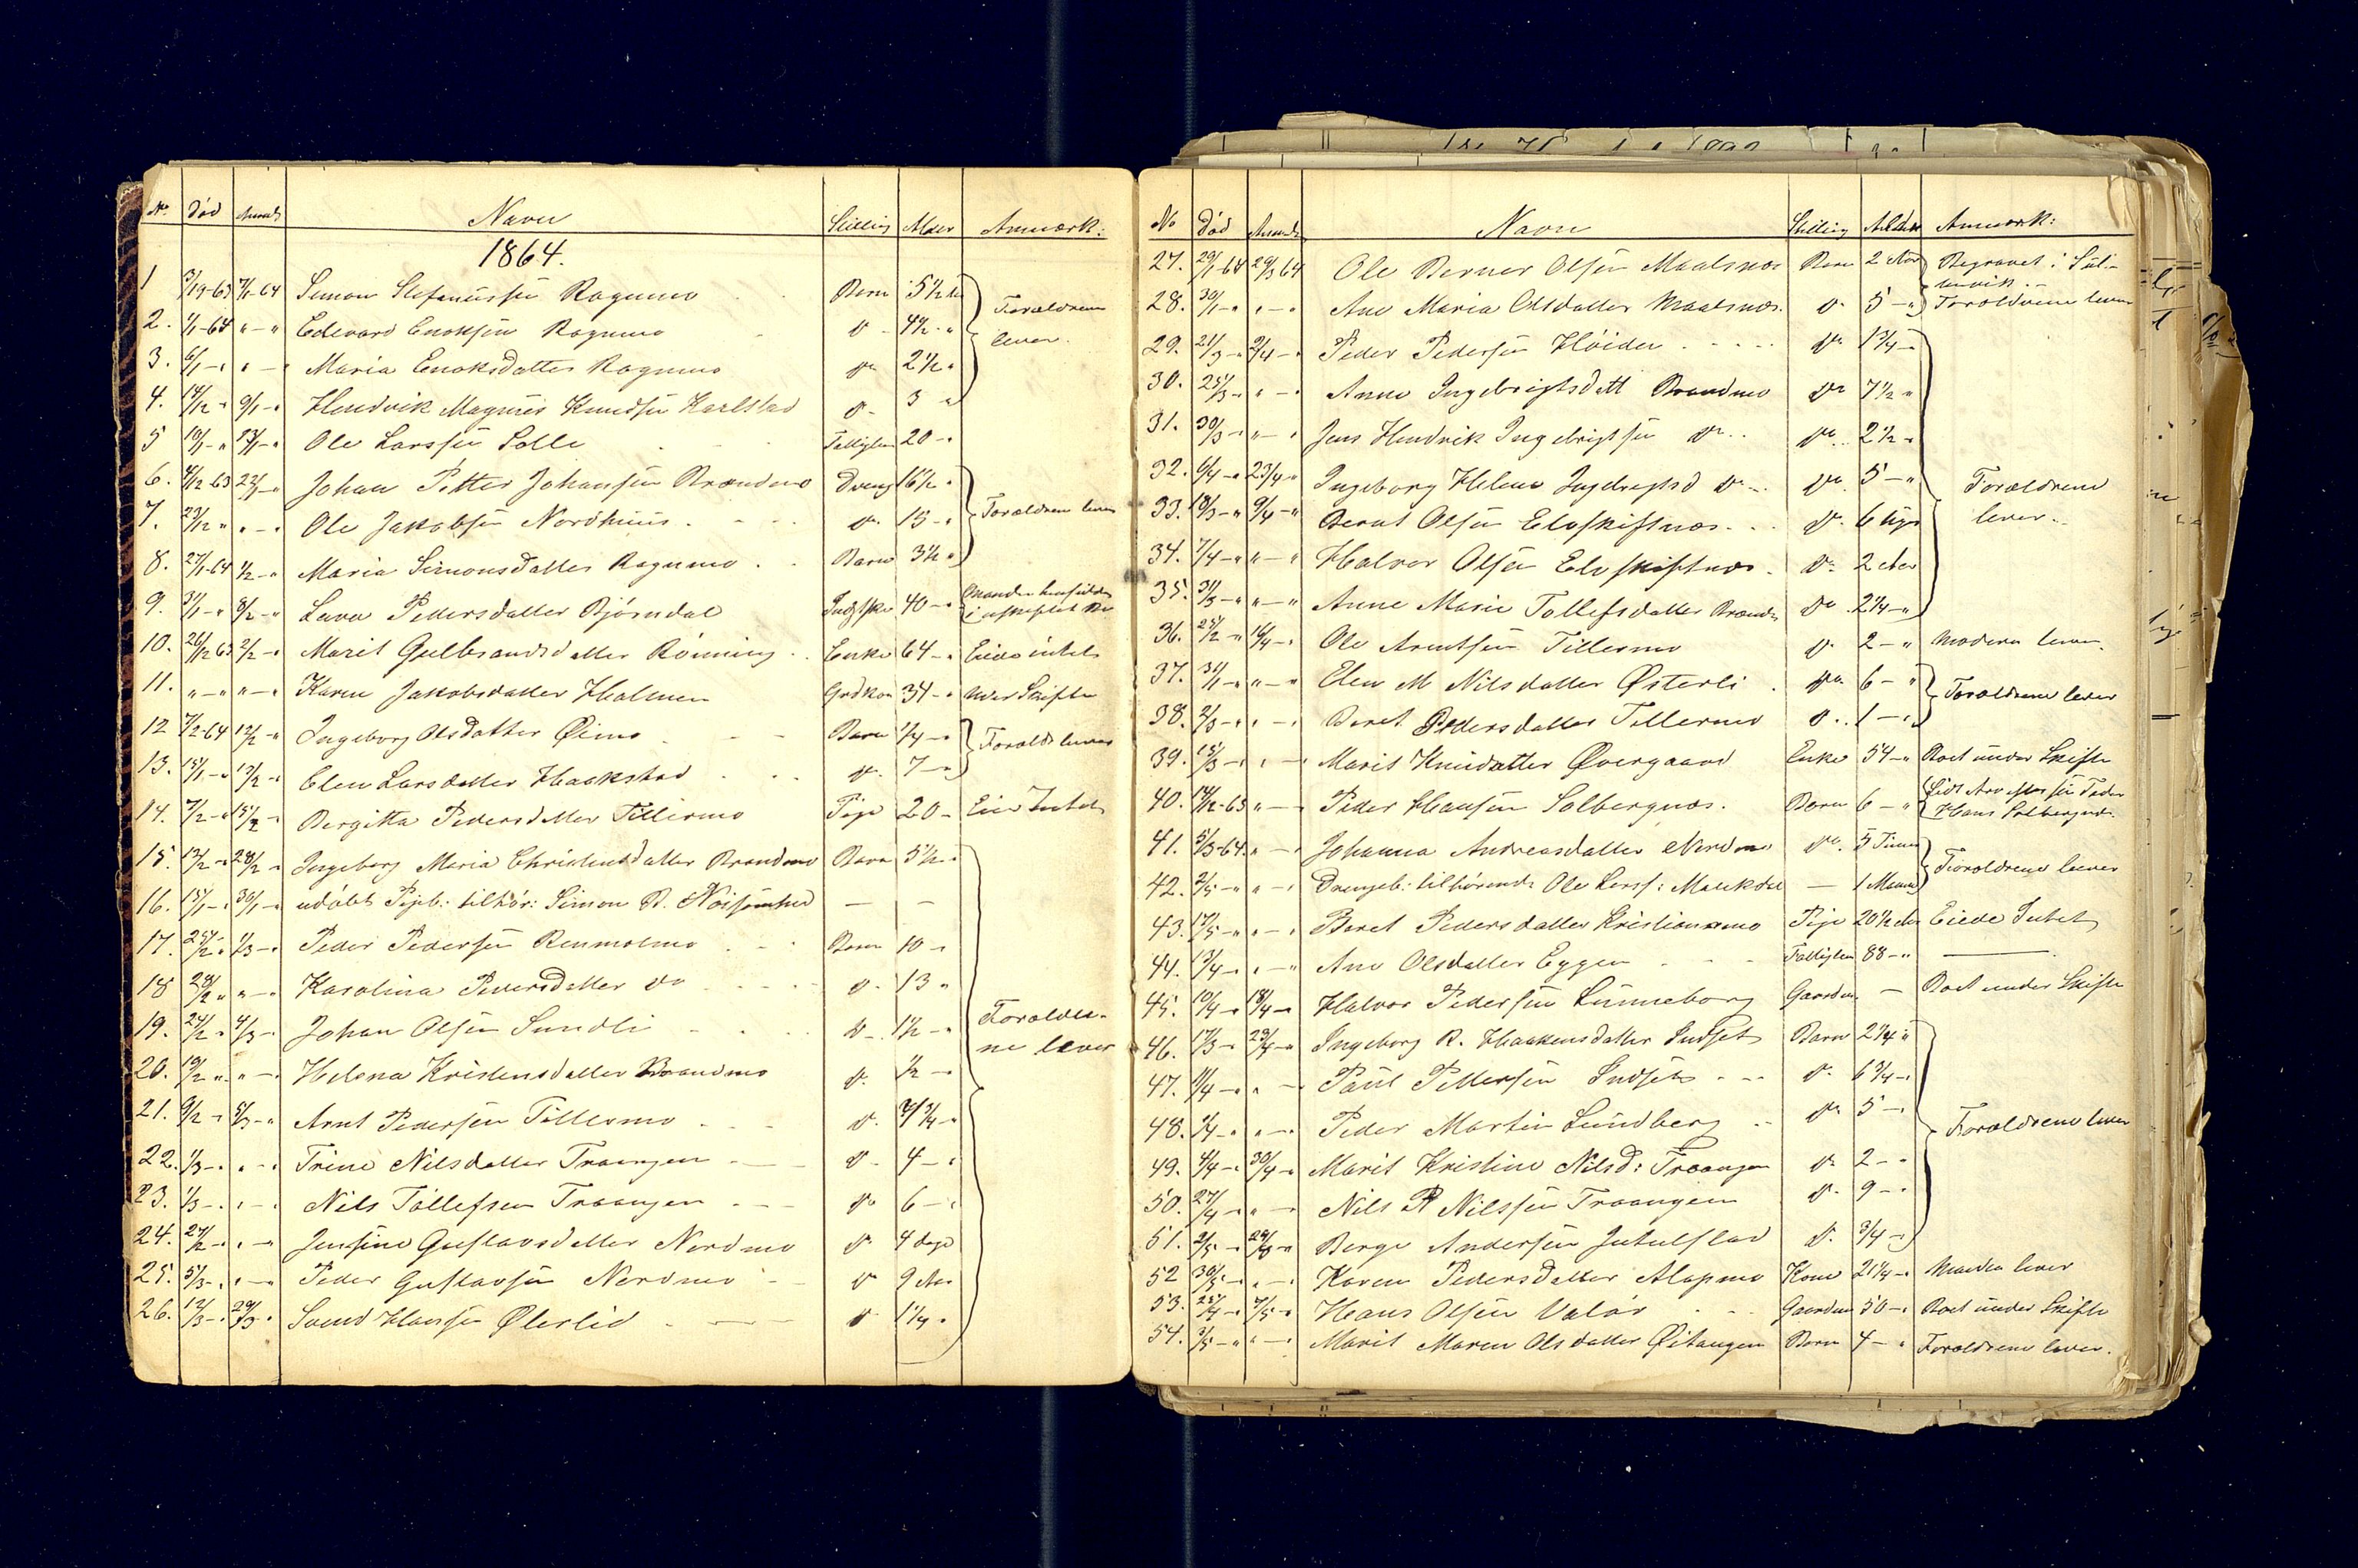 No Død Anmeldt Navn Stilling Alder Anmærk:
1864.
1 3/19-63 7/1-64 Simon Stefanussen Rognmo Barn 5½
2. 1/1-64 " - " Edevard Enoksen Rognmo d° 4½ " Forældrene lever.
3. 6/1 - " " - " Maria Enoksdatter Rognmo d° 2½ "
4. 14/12 - " 9/1 - " Hendrik Magnus Knudsen Karlstad d° 3 - "
5 10/1 - " 13/1 - " Ole Larssen Solli Fattiglem 20 - "
6. 4/12-63 22/1 - " Johan Petter Johansen Brandmo Dreng 16½ "
7. 23/12 " " - " Ole Jakobsen Nordhuus d° 15 - " Forældrene lever
8. 27/1-64 1/2 - " Maria Simonsdatter Rognmo Barn 3½ "
9. 31/1 - " 8/2 - " Lava Pedersdatter Bjørndal 40 - " Manden hensidder i uskiftet Bo
10. 26/12 63 2/2 - " Marit Gulbrandsdatter Rønning Enke 64 - " Eiede intet
11. " - " " - " Karen Jakobsdatter Holmen Grdkon 34 - " under Skifte
12 7/2-64 12/2 - " Ingeborg Olsdatter Øimo Barn ¼ - " Foræld: lever
13. 15/1 - " 13/2 - " Elen Larsdatter Haakstad d° 7 - "
14. 7/2 - " 15/2 - " Bergitta Pedersdatter Tillermo Pige 20 - Eier Intet
15. 13/2 - " 28/2 - " Ingeborg Maria Christensdatter Brandmo Barn 5½ "
16. 15/1 - " 30/1 - " udøbt Pigeb: tilhør: Simon B. — —
17. 25/2 - " 1/3 - " Peder Pedersen Renmolmo Barn 10 - "
18 28/2 " " - " Karolina Pedersdatter do d° 13 "
19. 24/2 - " 4/3 - " Johan Olsen Sundli d° 1½ - " Forældre-
ne lever
20. 19/2 " " - " Helena Kristensdatter Brandmo d° ½ - "
21. 9/2 - " 5/3 - " Arnt Pedersen Tillermo d° ¾ - "
22. 1/3 - " " - " Trine Nilsdatter Traangen d° 4 - "
23. 1/3 - " " - " Nils Tollefsen Traangen d° 6 - "
24. 27/2 - " " - " Jensine Gustavsdatter Nordmo d° 4 dage
25. 5/3 - " " - " Peder Gustavsen Nordmo d° 9 Aar
26. 12/3 - " 29/3 - " Svend Hansen Østerlid d° 1¼ "
No Død Anmeldt Navn Stilling Alder Anmærk:
27. 29/1-64 29/3 64 Ole Berner Olsen Maalsnes Barn 2 Aar Begravet i
28. 30/1 - " " - " Ane Maria Olsdatter Maalsnes d° 5 - " Forældrene lever
29. 21/3 - " 2/4 - " Peder Pedersen Høiden d° 1¾ -
30. 25/3 - " " - " Anne Ingebrigtsdatt Brandmo d° 7½ "
31. 30/3 - " " - " Jens Hendrik Ingebrigtsen d° d° 2½ "
32. 6/4 - " 23/4 - " Ingeborg Helene Ingebrigtsd d° d° 5 - " Forældrene
lever.
33. 18/3 - " 9/4 - " Bernt Olsen Elvskiftnes d° 6 Uger
34. 7/4 - " " - " Halvor Olsen Elvskiftnes d° 2 Aar
35. 31/3 - " " - " Anne Marie Tollefsdatter Brandm d° 2¼ - "
36. 25/2 - " 16/4 - " Ole Arntsen Tillermo d° 2 - " Moderen lever.
37. 31/1 - " " - " Elen M Nilsdatter Østerli d° 6 - " Forældrene lever
38. 2/3 - " " - " Beret Pedersdatter Tillermo d° 1 - "
39. 15/3 - " " - " Marit Knudatter Øvergaard Enke 54 - " Boet under Skifte
40. 14/12-63 " - " Peder Hansen Solbergnes. Barn 6 - " Lidt Arv efter sin Fader
Hans Solbergnes.
41. 5/3-64 " - " Johanna Andreasdatter Nordmo d° 5 Timer Forældrene lever
42. 2/5 - " " - " Drengeb: tilhørende Ole Larss: Mauksdal — 1 Maaned
43. 17/5 - " " - " Beret Pedersdatter Kristianmo Pige 20½ Aar Eiede Intet
44. 13/4 - " " - " Ane Olsdatter Eggen Fattiglem 88 - " —
45. 10/4 - " 18/4 - " Halvor Pedersen Lunneborg Gaardm — Boet under Skifte
46. 17/3 - " 29/4 - " Ingeborg B. Haakensdatter Indset Barn 2¼ "
47. 11/4 - " " - " Paul Pettersen Indset d° 6¾ - "
48. 1/4 - " " - " Peder Martin Lundberg d° 5 - " Forældrene lever
49. 4/4 - " 30/4 - " Marit Kristine Nilsd: Traangen d° 2 - "
50. 27/4 - " " - " Nils P Nilssen Traangen d° 9 - "
51. 2/5 - " Berge Andersen Jutulstad d° ¾ - "
52 30/5 - " " - " Karen Pedersdatter Alapmo Kone 21¼ - " Manden lever
53. 25/4 - " 7/5 - " Hans Olsen Valør Gaardm 50 - " Boet under Skifte
54. 3/5 - " " - " Marit Maren Olsdatter Øitangen Barn 4 - " Forældrene lever.